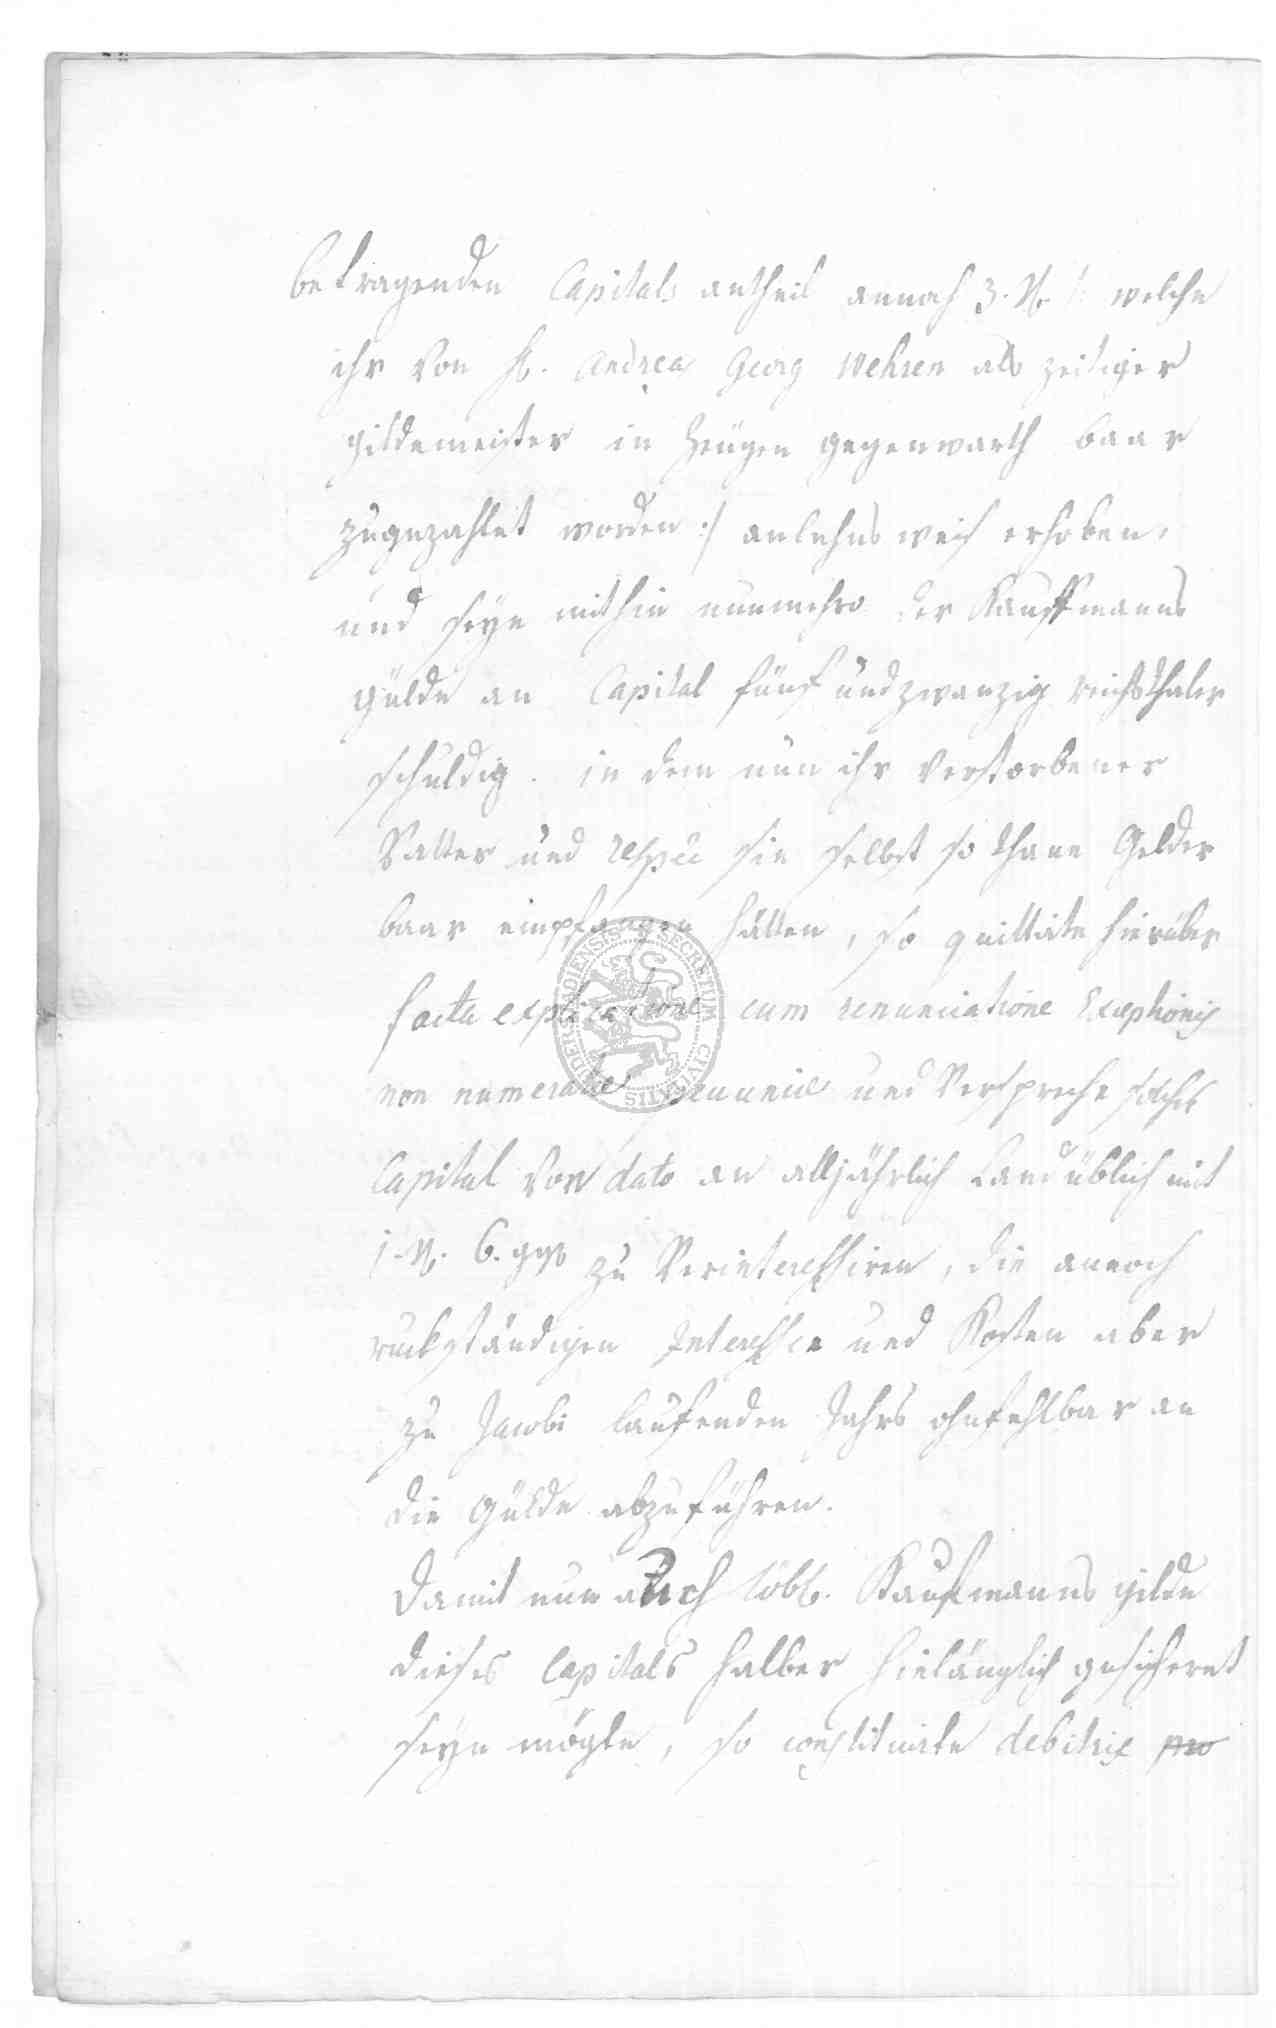 betragenden Capitals antheil annoch 3. rthl. /: welche
ihr von H. Andreas Georg Wehren als zeitiger
gildemeister in Zeugen gegenwarth baar
zugezahlet worden :/ anlehnsweis erhoben,
und seye mithin nunmehro der Kauffmanns
gülde an Capital fünf und zwanzig reichsthaler
schuldig. in dem nun ihr verstorbener
Vatter und respve sie selbst so thane Gelder
baar empfangen hätten, so quittirte hierüber
facta explicatione cum renunciatione Exceptionis
non numeratae pecuniae und Verspreche solches
Capital von dato an alljährlich Landüblich mit
1. rthl. 6. ggr zu Verinteressiren, die annoch
rückständigen Interesse und Kosten aber
zu Jacobi laufenden Jahrs ohnfehlbar an
die Gülde abzuführen.
Damit nun auch löbl. Kaufmanns gilde
dieses Capitals halber hinlänglich gesichert
seyn mögte, so constituirte debitrix pro
SECRETUM CIVITATIS DUDERSTADIENSIS